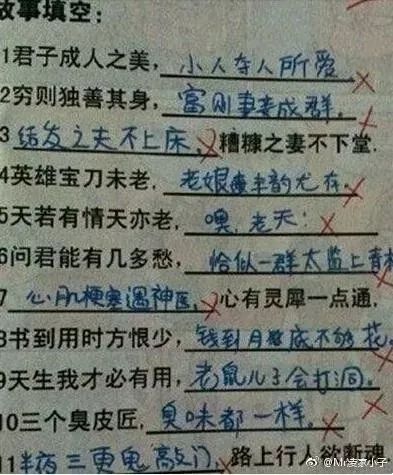 故事填空：
1君子成人之美，小人夺人所爱
2穷则独善其身，富则妻妾成群。
3结发之夫不上床，糟糠之妻不下堂.
4英雄宝刀未老，老娘丰韵尤存。
5天若有情天亦老，噢，老天！
6问君能有几多愁，恰似一群太监上青
7心肌梗塞遇神医，心有灵犀一点通，
8书到用时方恨少，钱到月底不够花。
9天生我才必有用，老鼠儿子会打洞。
10三个臭皮匠，臭味都一样。
11半夜三更鬼敲门，路上行人欲断魂
@Mr凄凉小子